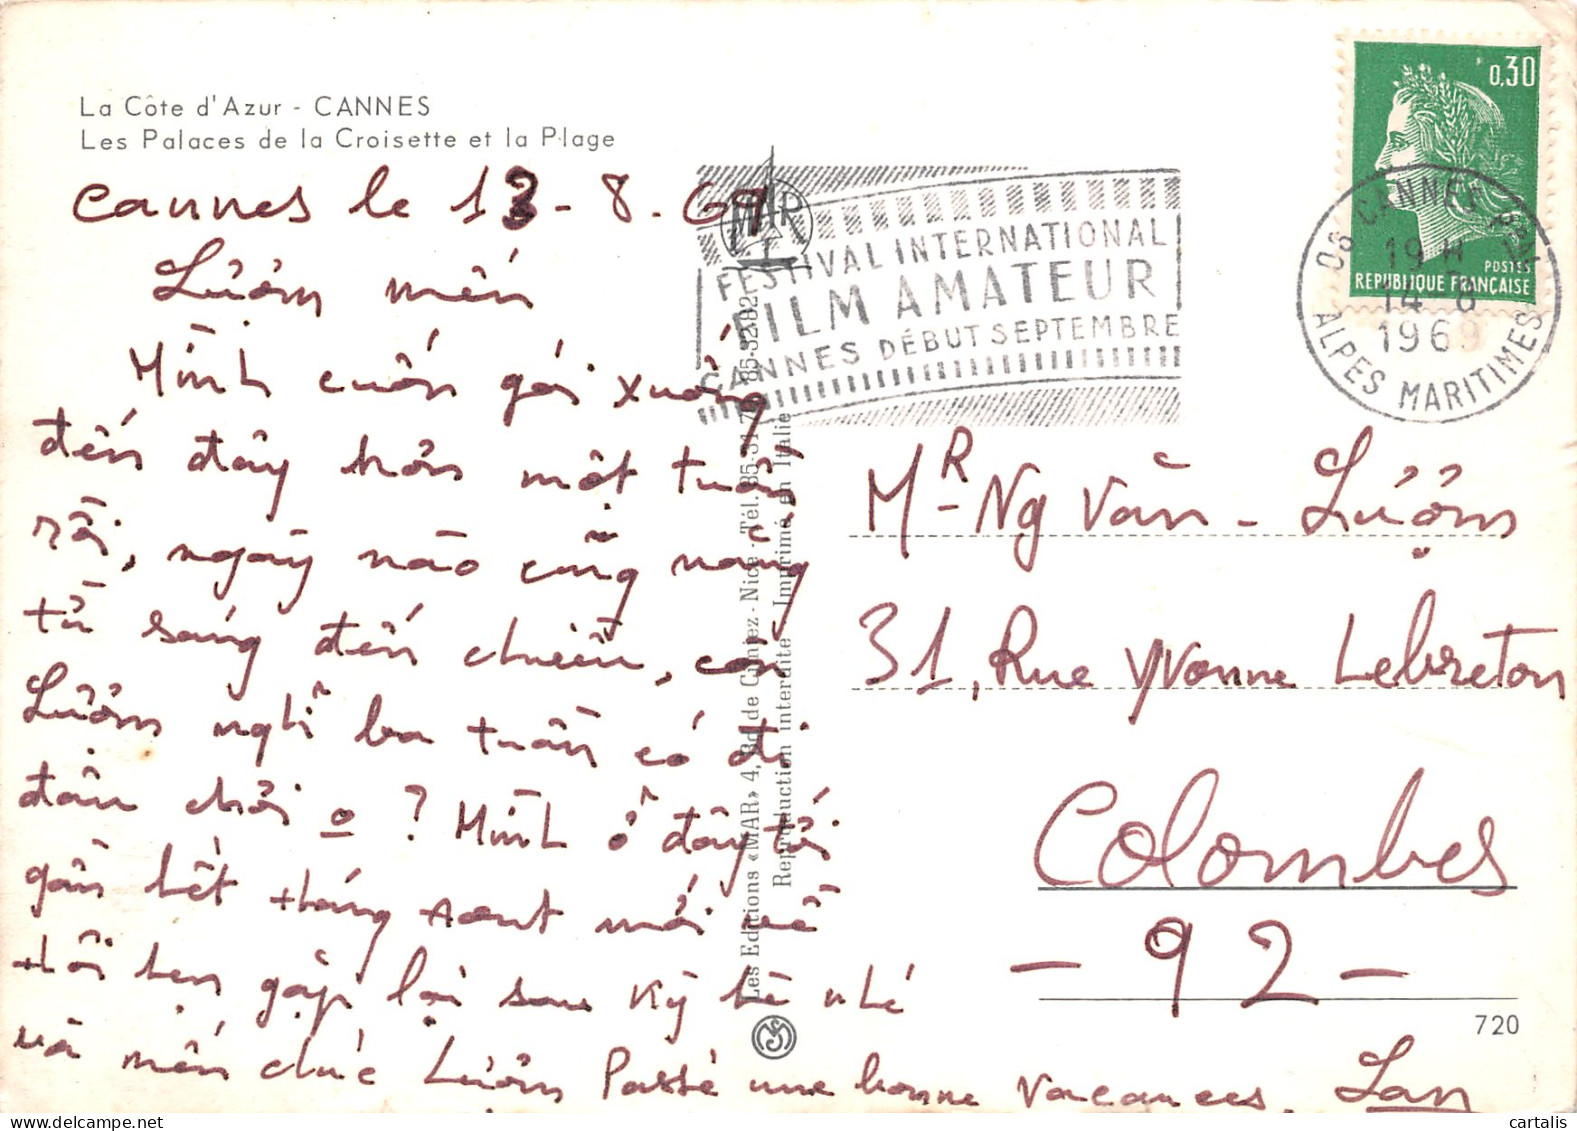 La Côte d'Azur - CANNES
Les Palaces de la Croisette et la Plage
Cannes le 13-8-69
Lượm mến
Mình cuốn gói xuống
đến đây hơn một tuần
rồi, ngày nào cũng nắng
từ sáng đến chiều, còn
Lượm nghỉ ba tuần có đi
đâu chơi o ? Mình ở đây tới
gần hết tháng aout mới về
thôi hẹn gặp lại sau kỳ hè nhé
và mến chúc Lượm Passé une bonne vacances. Lan
FESTIVAL INTERNATIONAL
FILM AMATEUR
CANNES DÉBUT SEPTEMBRE
MAR
Les Editions «MAR» 4, Bd de Cimiez - Nice - Tél.
Reproduction interdite - Imprimé en Italie
0,30
POSTES
REPUBLIQUE FRANÇAISE
06 CANNES
19 H
14-8
1969
ALPES MARITIMES
MR - Ng Văn - Lượm
31, Rue Yvonne Lebreton
Colombes
- 92 -
720
cartalis